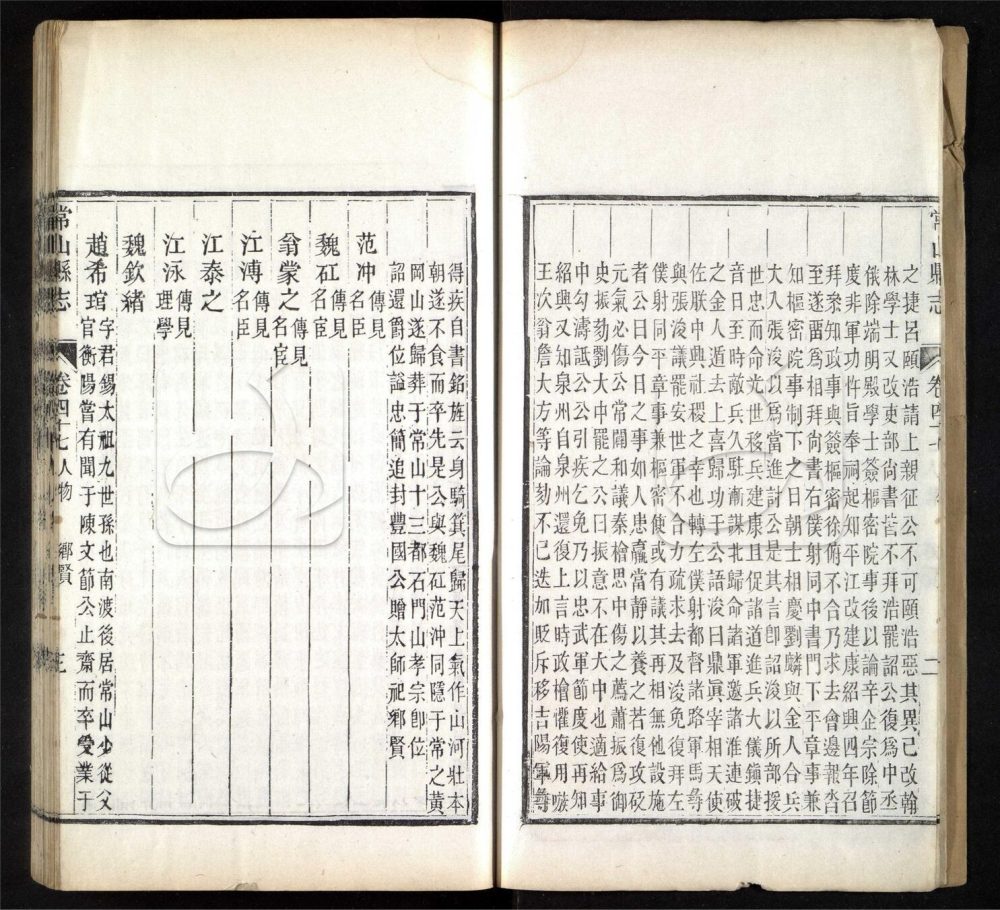 之捷呂頤浩請上親征公不可頤浩惡其異己改翰
林學士又改吏部尚書皆不拜浩罷詔公復爲中丞
俄除端明殿學士簽樞密院事後以論辛企宗除節
度非軍功忤旨奉祠起知平江改建康紹興四年召
拜叅知政事與簽樞密徐俯不合乃求去會邊報沓
至遂畱爲相拜尚書右僕射同中書門下平章事兼
知樞密院事制下之日朝士相慶劉麟與金人合兵
大入張浚以爲當進討公是其言卽詔浚以所部援
世忠而命光世移兵建康且促諸道進兵大儀鎭捷
音日至時敵兵久駐漸謀北歸命諸軍邀諸淮連破
之金人遁去上喜歸功于公語浚曰鼎眞宰相天使
佐朕中興社稷之幸也轉左僕射都督諸路軍馬尋
與張浚議罷安世軍不合力疏求去及浚免復拜左
僕射同平章事兼樞密使或有議其再相無他設施
者公曰今日之事如人患羸當靜以養之若復攻砭
元氣必傷公常闢和議秦檜思中傷之薦蕭振爲御
史振劾劉大中罷之公曰振意不在大中也適給事
中勾濤詆公公引疾乞免以忠武軍節度使再知
紹興又知泉州自泉州還復上言時政檜懼復用嗾
王次翁詹大方等論劾不已迭加貶斥移吉陽軍尋
常山縣志
卷四十七
二
得疾自書銘旌云身騎箕尾歸天上氣作山河壯本
朝遂不食而卒先是公與魏矼范沖同隱于常之黃
岡山遂歸葬于常山十三都石門山孝宗卽位
詔還爵位諡忠簡追封豐國公贈太師祀鄉賢
范冲傳見名臣
魏矼傳見名宦
翁蒙之傳見名宦
江溥傳見名臣
江泰之
江泳傳見理學
魏欽緒
趙希琯字君錫太祖九世孫也南渡後居常山少從父
官衡陽嘗有聞于陳文節公止齋而卒受業于
常山縣志
卷四十七人物 鄉賢
三